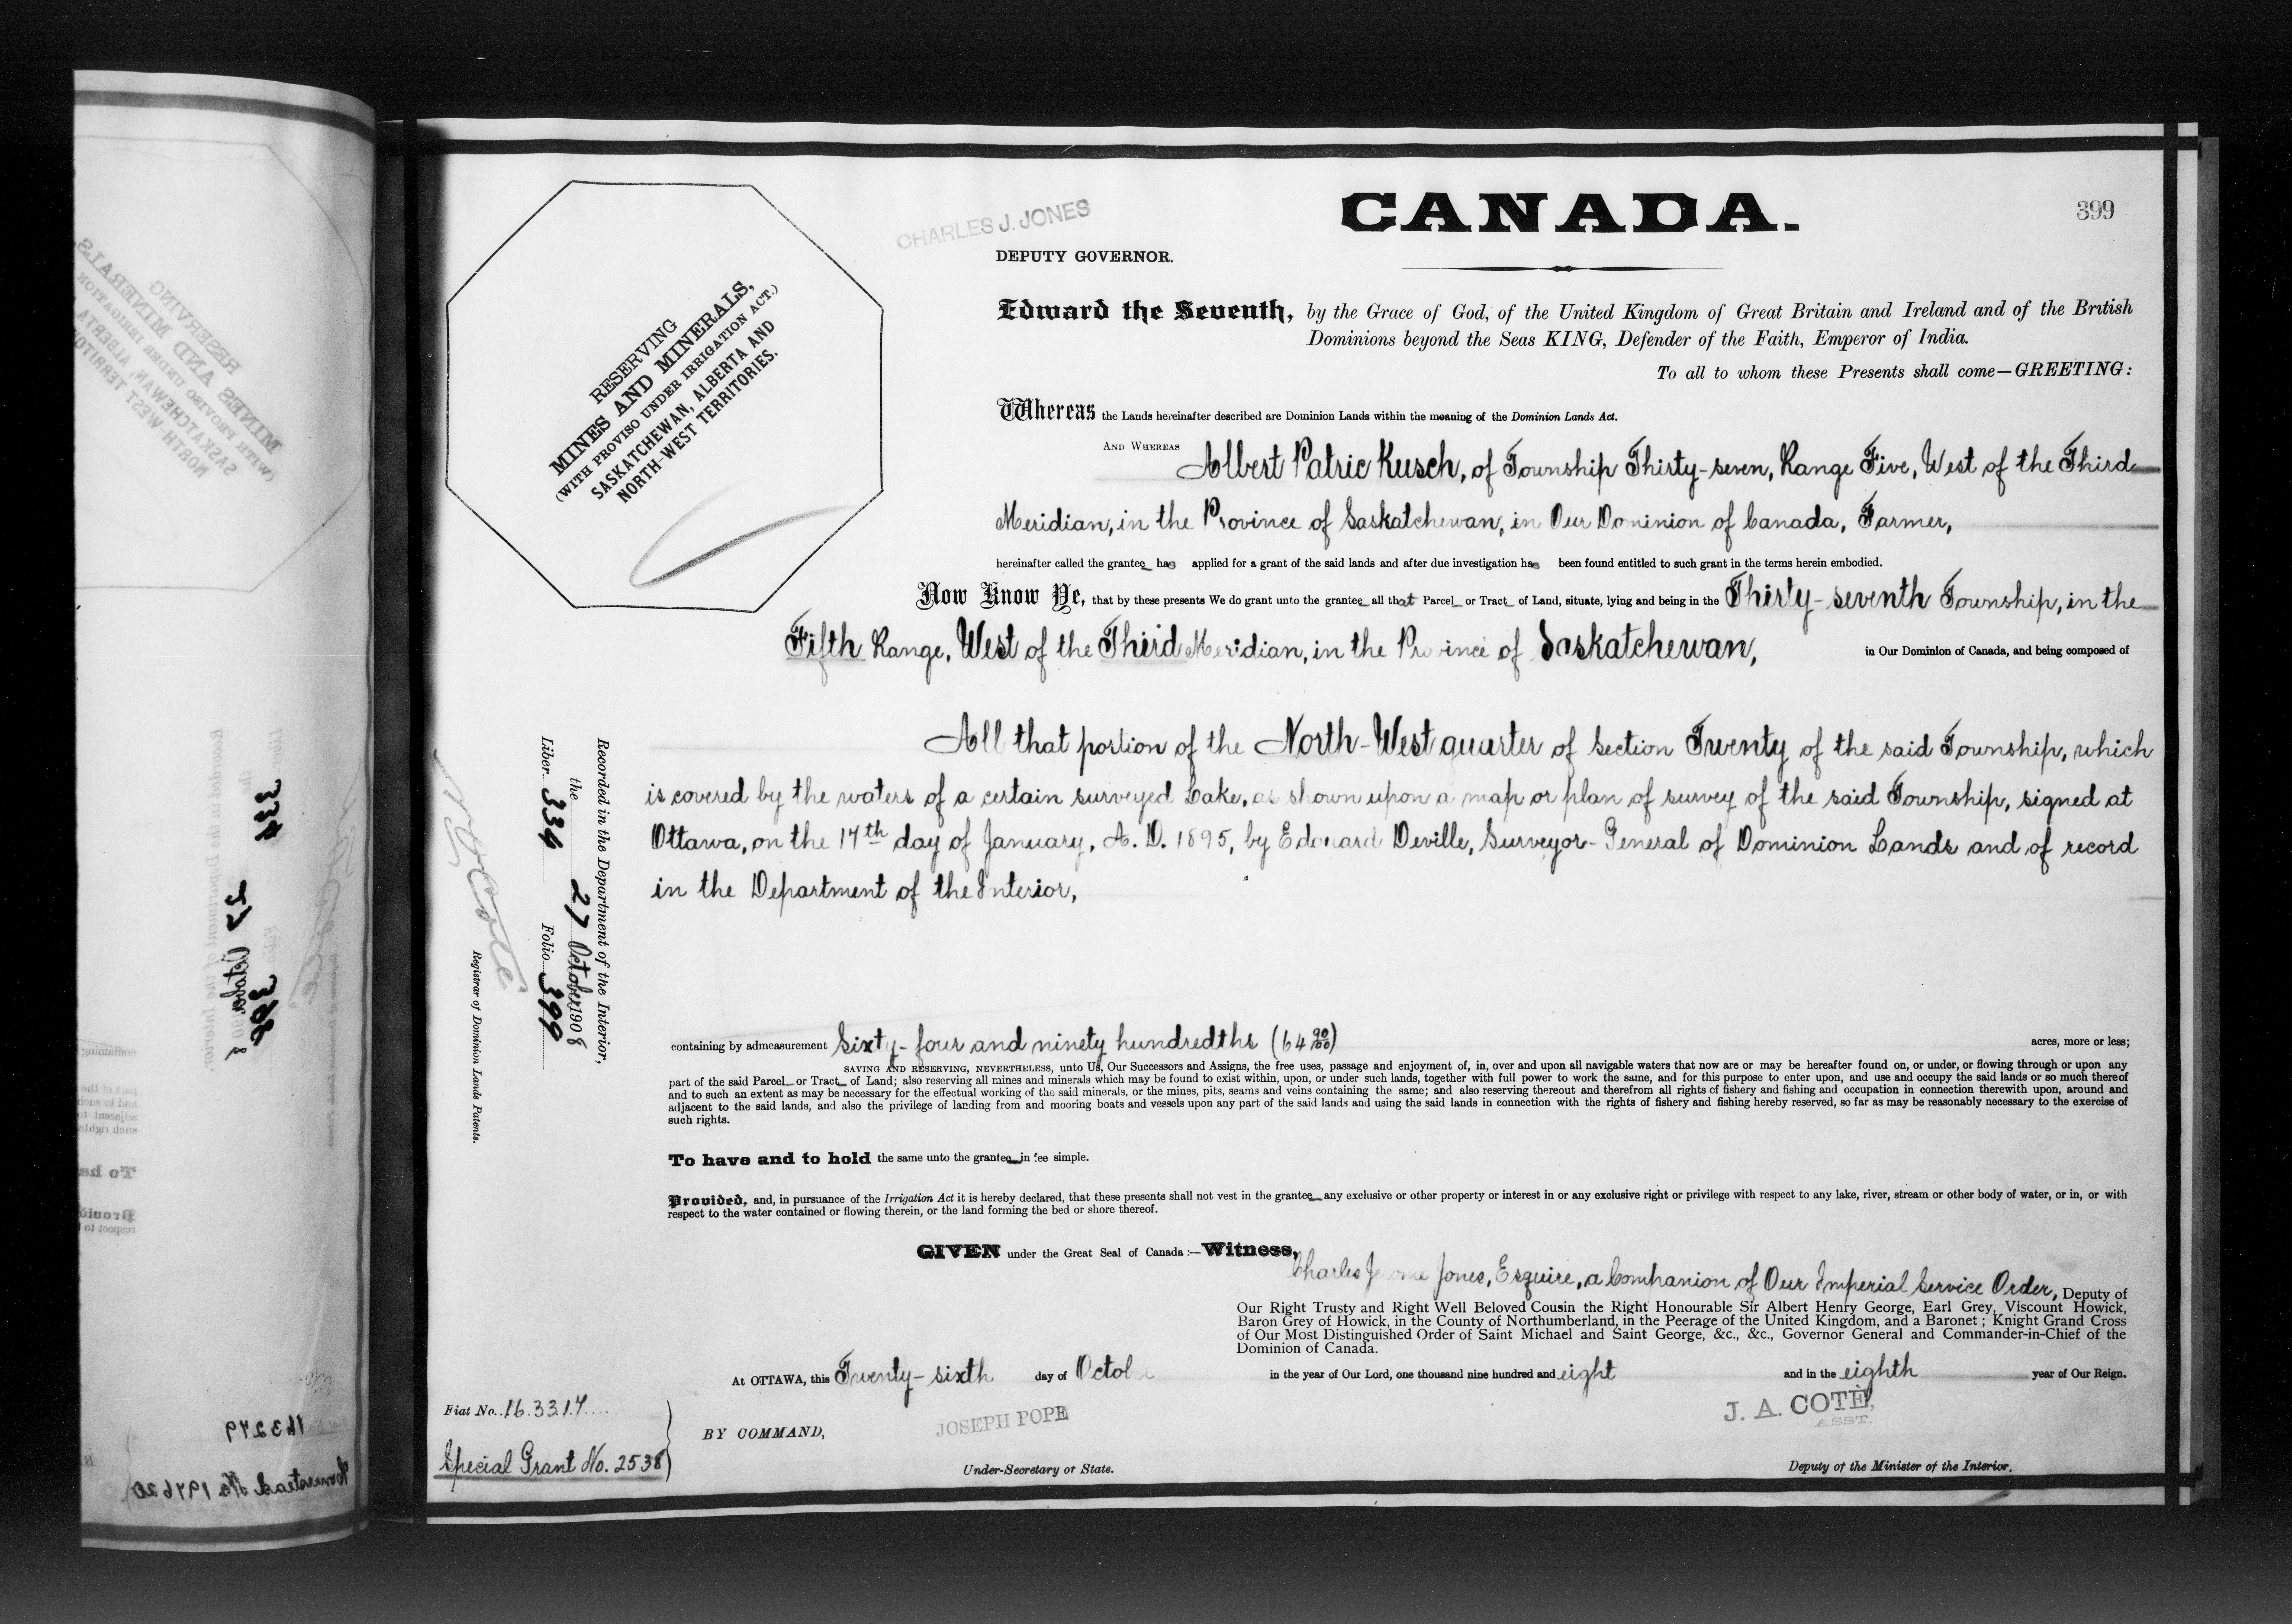 399
CANADA.
CHARLES J. JONES
DEPUTY GOVERNOR.
RESERVING
MINES AND MINERALS,
(WITH PROVISO UNDER IRRIGATION ACT.)
SASKATCHEWAN, ALBERTA AND
NORTH-WEST TERRITORIES.
Edward the Seventh, by the Grace of God, of the United Kingdom of Great Britain and Ireland and of the British
Dominions beyond the Seas KING, Defender of the Faith, Emperor of India.
To all to whom these Presents shall come—GREETING:
Whereas the Lands hereinafter described are Dominion Lands within the meaning of the Dominion Lands Act.
AND WHEREAS Albert Patric Kusch, of Township Thirty-seven, Range Five, West of the Third
Meridian, in the Province of Saskatchewan, in Our Dominion of Canada, Farmer,
hereinafter called the grantee has applied for a grant of the said lands and after due investigation has been found entitled to such grant in the terms herein embodied.
Now Know Ye, that by these presents We do grant unto the grantee all that Parcel or Tract of Land, situate, lying and being in the Thirty-seventh Township, in the
Fifth Range, West of the Third Meridian, in the Province of Saskatchewan, in Our Dominion of Canada, and being composed of
All that portion of the North-West quarter of Section Twenty of the said Township, which
is covered by the waters of a certain surveyed Lake, as shown upon a map or plan of survey of the said Township, signed at
Ottawa, on the 17th day of January, A. D. 1895, by Edouard Deville, Surveyor-General of Dominion Lands and of record
in the Department of the Interior,
Recorded in the Department of the Interior,
the 27 October 1908
Liber 334 Folio 399
Registrar of Dominion Lands Patents.
containing by admeasurement Sixty-four and ninety hundredths (64 90/100) acres, more or less;
SAVING AND RESERVING, NEVERTHELESS, unto Us, Our Successors and Assigns, the free uses, passage and enjoyment of, in, over and upon all navigable waters that now are or may be hereafter found on, or under, or flowing through or upon any
part of the said Parcel or Tract of Land; also reserving all mines and minerals which may be found to exist within, upon, or under such lands, together with full power to work the same, and for this purpose to enter upon, and use and occupy the said lands or so much thereof
and to such an extent as may be necessary for the effectual working of the said minerals, or the mines, pits, seams and veins containing the same; and also reserving thereout and therefrom all rights of fishery and fishing and occupation in connection therewith upon, around and
adjacent to the said lands, and also the privilege of landing from and mooring boats and vessels upon any part of the said lands and using the said lands in connection with the rights of fishery and fishing hereby reserved, so far as may be reasonably necessary to the exercise of
such rights.
To have and to hold the same unto the grantee in fee simple.
Provided, and, in pursuance of the Irrigation Act it is hereby declared, that these presents shall not vest in the grantee any exclusive or other property or interest in or any exclusive right or privilege with respect to any lake, river, stream or other body of water, or in, or with
respect to the water contained or flowing therein, or the land forming the bed or shore thereof.
GIVEN under the Great Seal of Canada:—Witness,
Charles Jerome Jones, Esquire, a Companion of Our Imperial Service Order, Deputy of
Our Right Trusty and Right Well Beloved Cousin the Right Honourable Sir Albert Henry George, Earl Grey, Viscount Howick,
Baron Grey of Howick, in the County of Northumberland, in the Peerage of the United Kingdom, and a Baronet; Knight Grand Cross
of Our Most Distinguished Order of Saint Michael and Saint George, &c., &c., Governor General and Commander-in-Chief of the
Dominion of Canada.
At OTTAWA, this Twenty-sixth day of Octob in the year of Our Lord, one thousand nine hundred and eight and in the eighth year of Our Reign.
Fiat No. 163317
Special Grant No. 2538
BY COMMAND,
JOSEPH POPE
Under-Secretary of State.
J. A. COTÉ,
ASST.
Deputy of the Minister of the Interior.